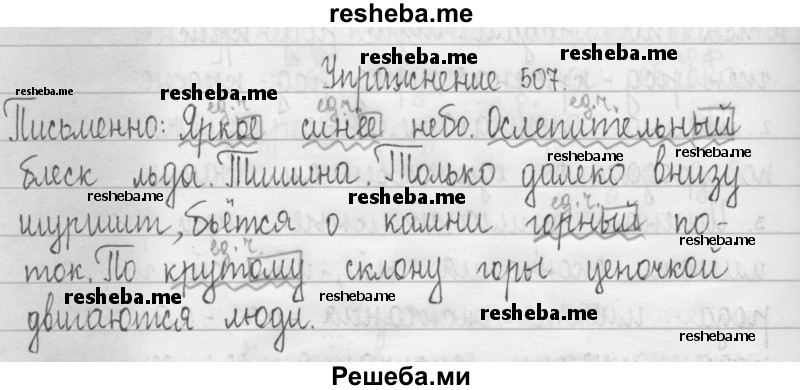 resheba.me
resheba.me
resheba.me
Упражнение 507.
resheba.me
resheba.me
ед.ч. ед.ч. ед.ч.
Письменно: Яркое синее небо. Ослепительный
resheba.me
resheba.me
блеск льда. Тишина. Только далеко внизу
resheba.me
resheba.me
ед.ч.
шуршит, бьётся о камни горный по-
resheba.me
ед.ч.
ток. По крутому склону горы цепочкой
resheba.me
resheba.me
resheba.me
двигаются люди.
resheba.me
Решеба.ми